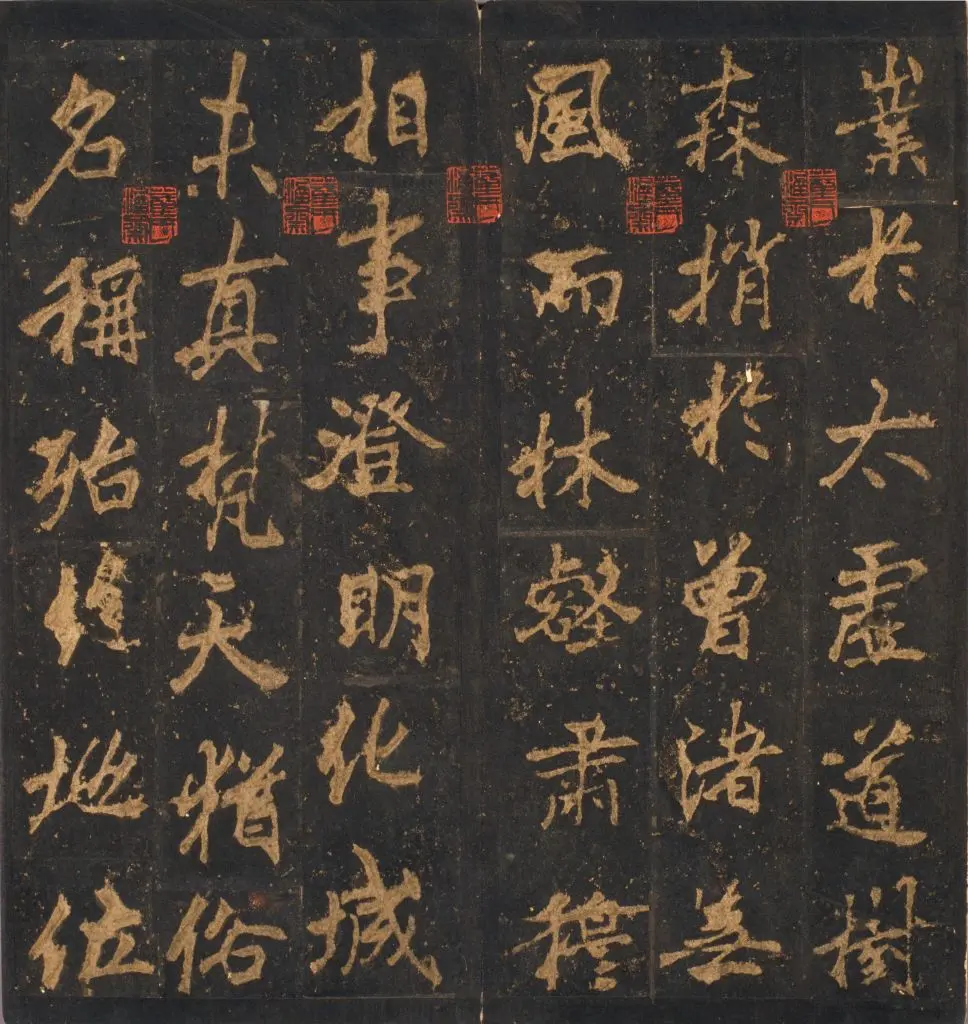 業於太虛道樹
森捎於曾渚無
風而林壑肅穆
相事澄明化城
未真梵天猶俗
名稱殆絕地位